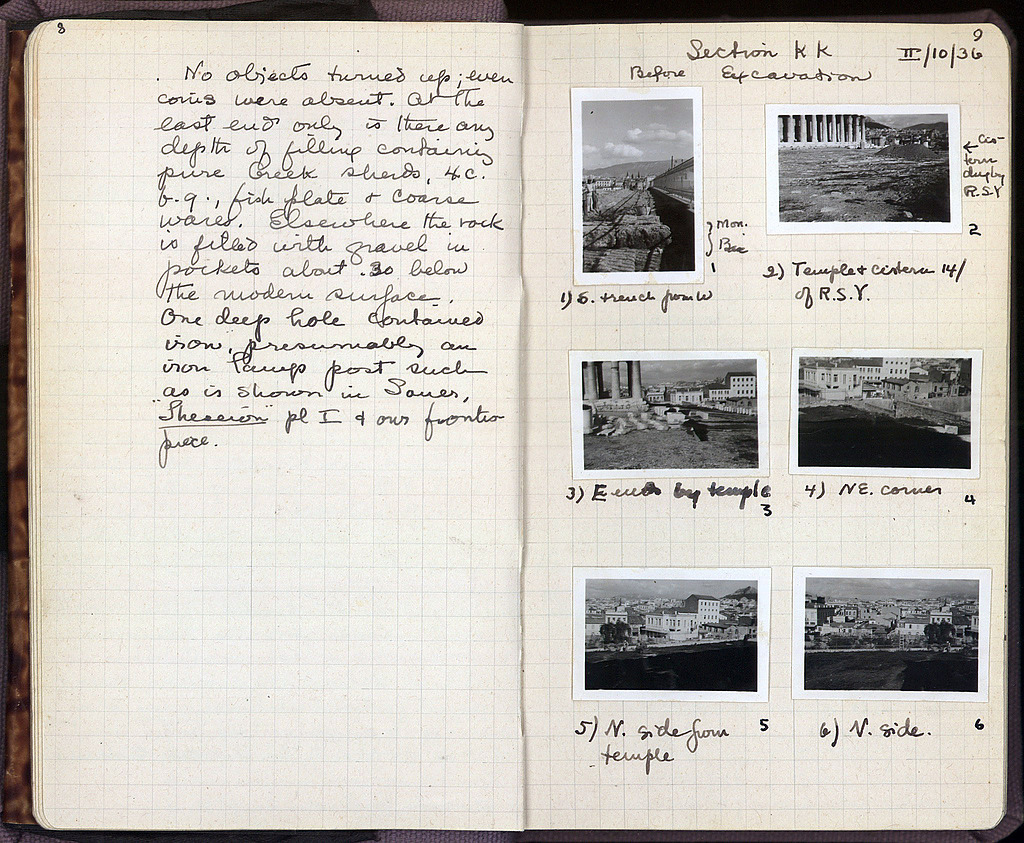 8
No objects turned up; even
coins were absent. At the
east end only is there any
depth of filling containing
pure Greek sherds, 4 c.
b. g., fish plate & coarse
wares. Elsewhere the rock
is filled with gravel in
pockets about .30 below
the modern surface.
One deep hole contained
iron, presumably an
iron lamp post such
as is shown in Sauer,
"Theseion" pl I & our frontis-
piece.
9
Section KK II/10/36
Before Excavation
Mon.
1
1) S. trench from W
← Cis-
tern
dug by
R.S.Y
2
2) Temple & cistern 14/
of R.S.Y.
3) E end by temple
3
4) NE. corner
4
5) N. side from
temple
5
6) N. side.
6